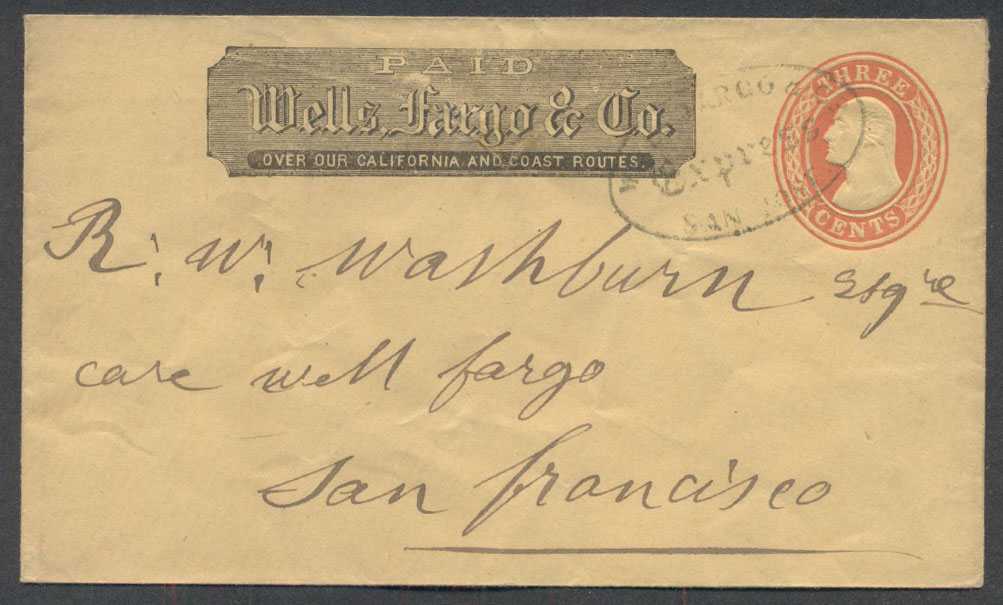 PAID
Wells, Fargo & Co.
OVER OUR CALIFORNIA AND COAST ROUTES.
FARGO &
Express
SAN JOSE
THREE
CENTS
R. W. Washburn Esqre
care well fargo
San francisco